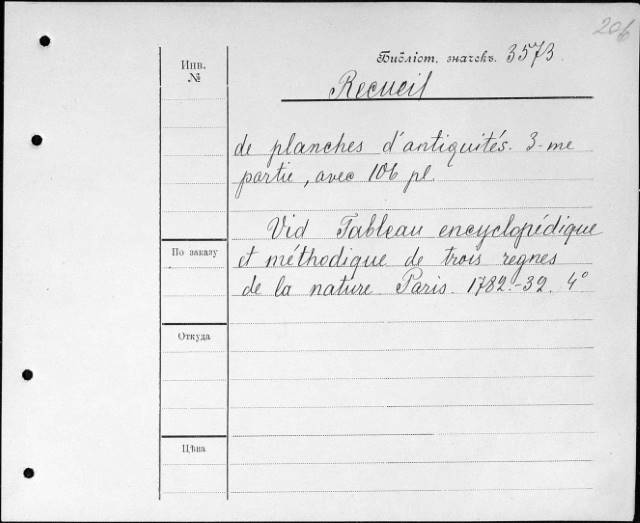 206
Инв.
№
Библіот. значекъ. 3573.
Recueil
de planches d'antiquités. 3-me
partie, avec 106 pl.
Vid Tableau encyclopédique
et méthodique de trois regnes
de la nature Paris. 1782.-32. 4°
По заказу
Откуда
Цѣна